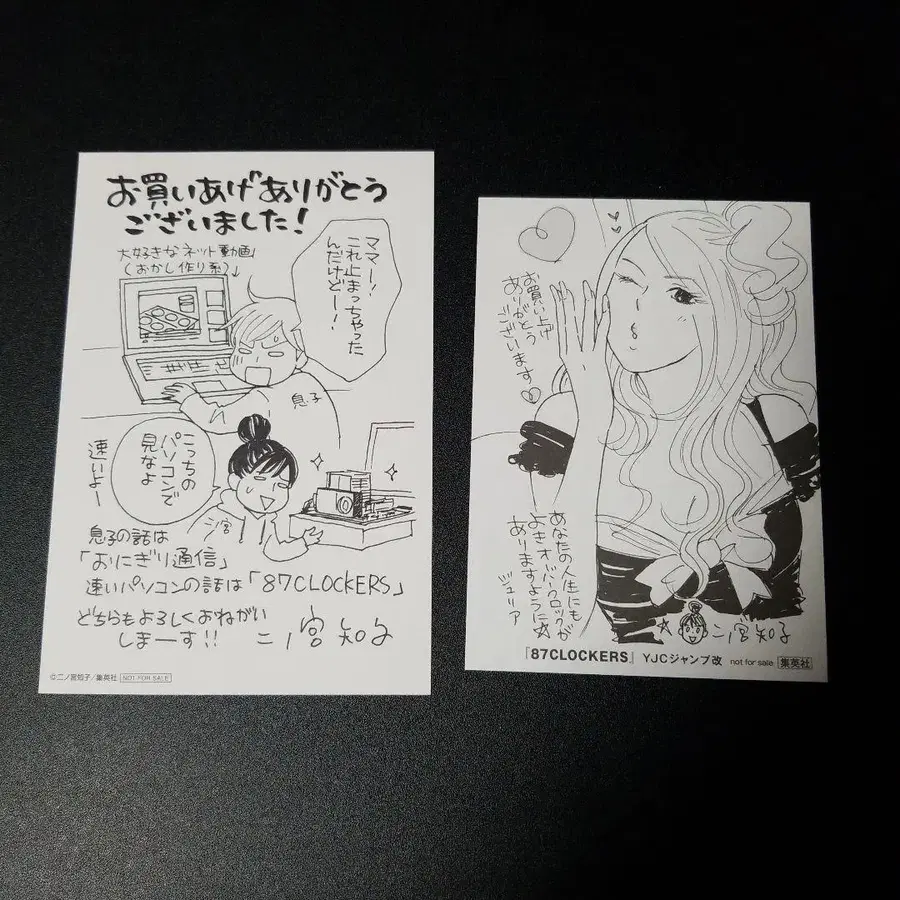 お買いあげありがとう
ございました！
大好きなネット動画
(おかし作り系)↓
ママー！
これ止まっちゃった
んだけどー！
息子
こっちの
パソコンで
見なよ
速いよー
二ノ宮
息子の話は
「おにぎり通信」
速いパソコンの話は「87CLOCKERS」
どちらもよろしくおねがい
しまーす!!
二ノ宮知子
©二ノ宮知子/集英社 NOT FOR SALE
お買い上げ
ありがとう
ございます♡
あなたの人生にも
よきオーバークロックが
ありますように☆
ジュリア
☆ 二ノ宮知子
『87CLOCKERS』 YJCジャンプ改 not for sale 集英社